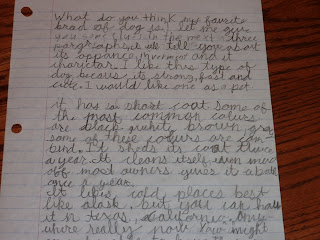 What do you think my favorite
brad of dog is? Let me give
you some clues in the next three
paragraphs, it will tell you about
its apperance, and it
charictar. I like this type of
dog becaus its strong, fast and
cute. I would like one as a pet.
it has a short coat some of
the most common colurs
are black white brown gray
some of these colurs are com
bind. It sheds its coat twice
a year. It cleans itself even more
off most owners gives it a bath
once a year.
It likes cold places best
like alask but you can have
it in texas, california, any-
where really now. You might